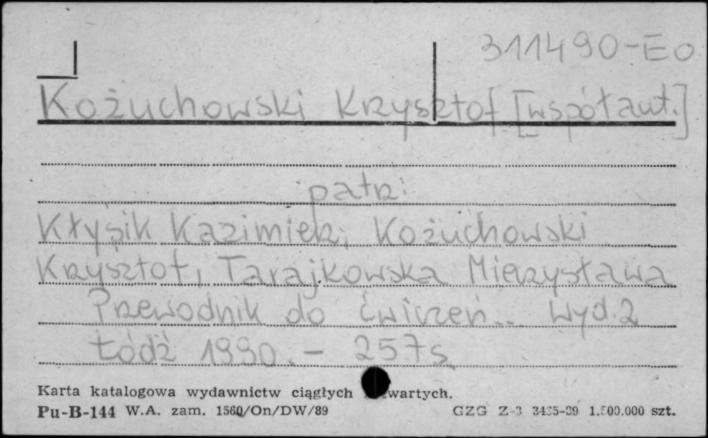 311490-EO
Kożuchowski Krzysztof [współaut.]
patrz:
Kłysik Kazimierz, Kożuchowski
Krzysztof, Tarajkowska Mierzysława
Przewodnik do ćwiczeń... Wyd. 2
Łódź 1990. - 257s
Karta katalogowa wydawnictw ciągłych wartych.
Pu-B-144 W.A. zam. 1560/On/DW/89 GZG Z-3 1.500.000 szt.